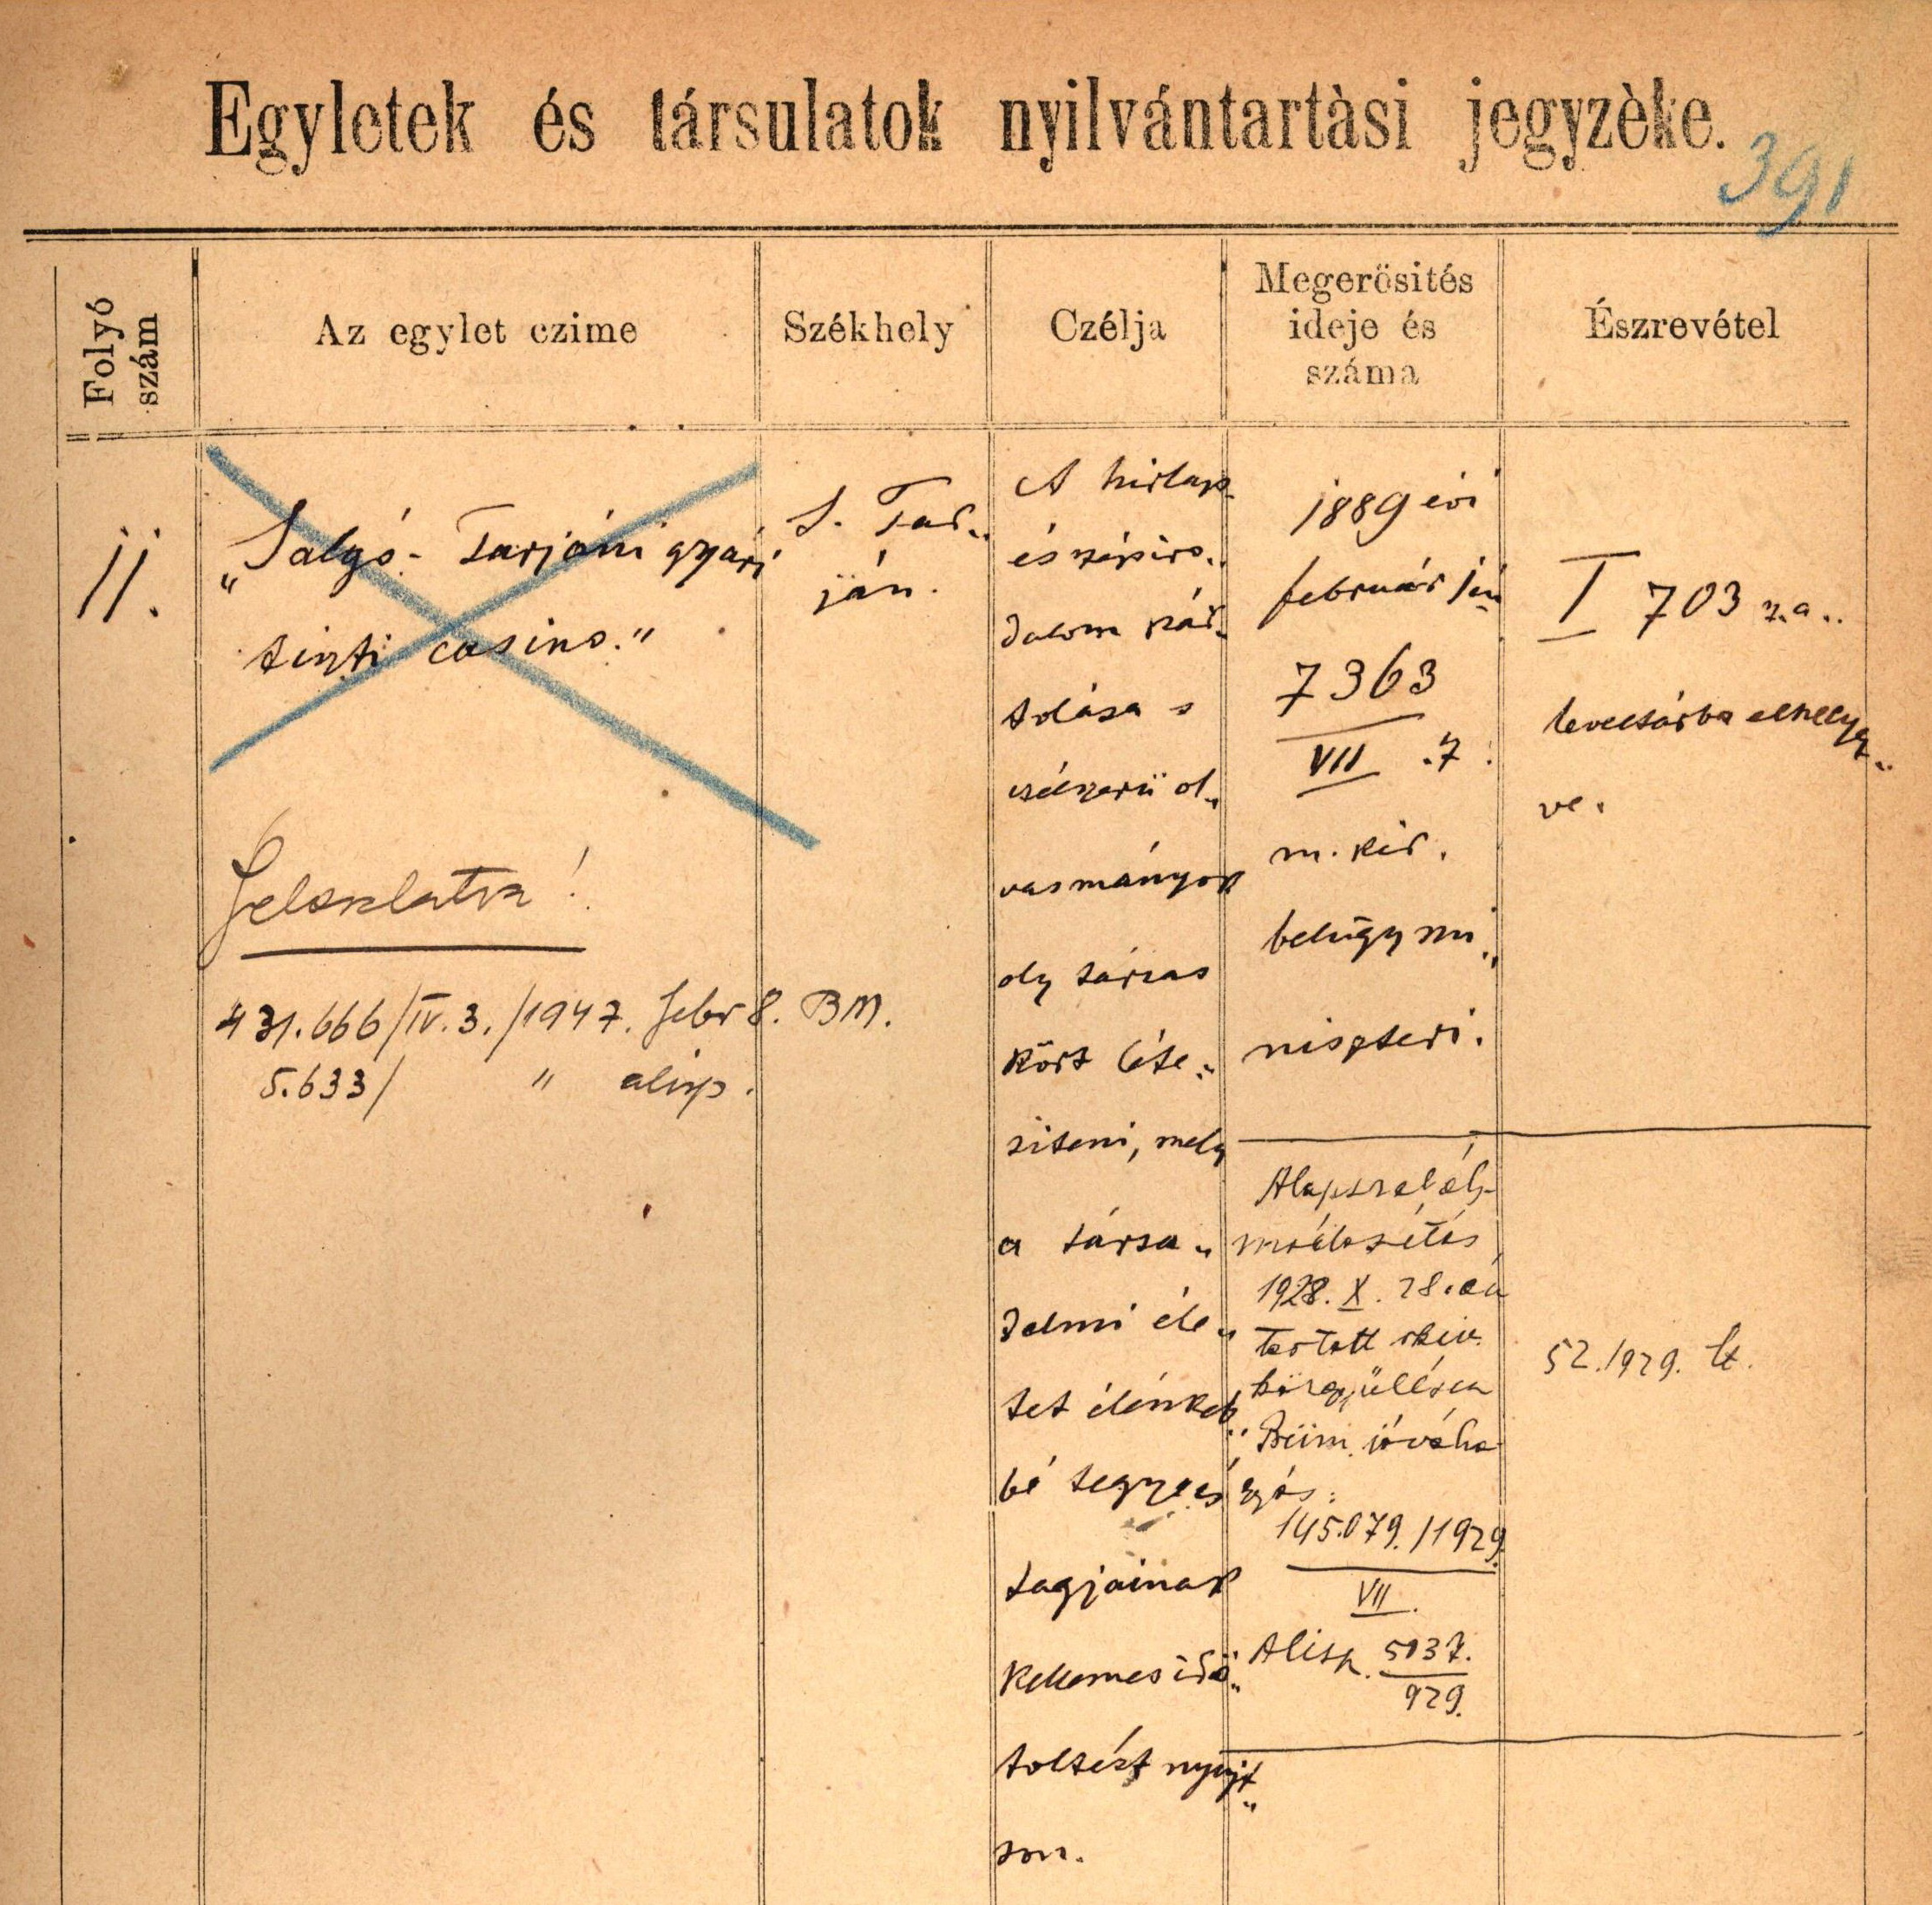 Egyletek és társulatok nyilvántartàsi jegyzèke.
391
Folyó
szám
Az egylet czime
Székhely
Czélja
Megerösités
ideje és
száma
Észrevétel
11.
„Salgó-Tarjáni gyári
tiszti casino."
Feloszlatva!
431.666/IV.3./1947. febr 8. BM.
5.633/ " alisp.
S. Tar„
ján.
A hirlap
és szépiro„
dalom pár„
tolása s
czélszerü ol„
vasmányok
oly társas
kört léte„
siteni, mely
a társa„
dalmi éle„
tet élénkeb„
bé tegye és
tagjainak
kellemes idö„
töltést nyujt„
son.
1889 évi
február 1én
7363
VII .7.
m. kir.
belügymi„
niszteri.
Alapszabály
módosítás
1928. X. 28.án
tartott rkiv.
közgyülésen
Büm. jóváha
gyás:
145.079./1929.
VII.
Alisp. 5137.
929.
I 703 sz.a..
levéltárba elhelyez„
ve.
52./929. lt.